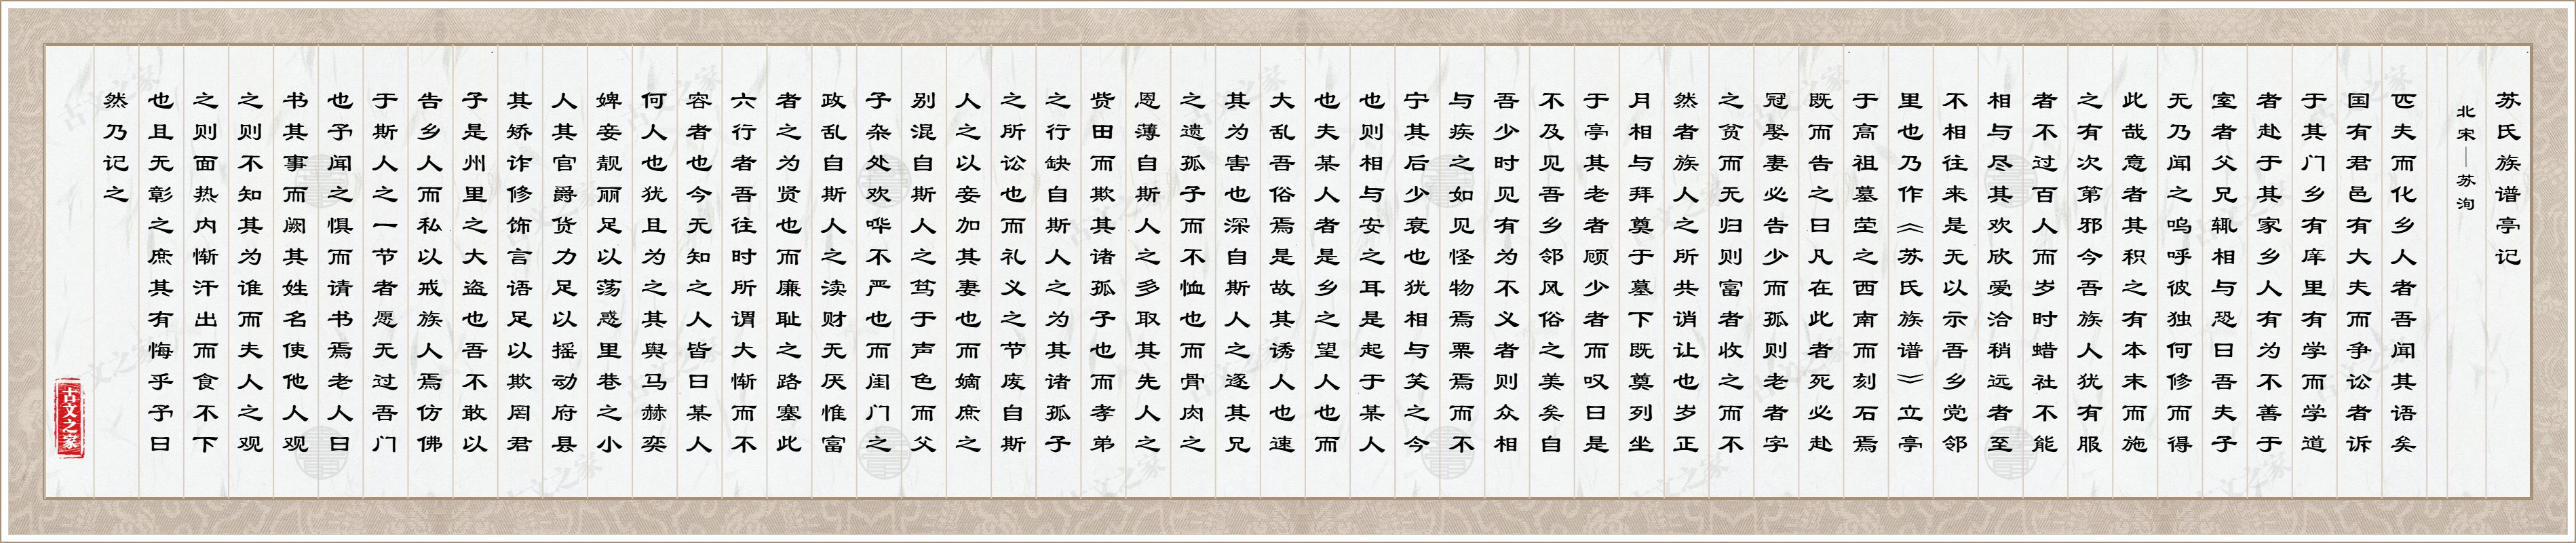 苏氏族谱亭记
北宋—苏洵
匹夫而化乡人者吾闻其语矣
国有君邑有大夫而争讼者诉
于其门乡有庠里有学而学道
者赴于其家乡人有为不善于
室者父兄辄相与恐曰吾夫子
无乃闻之呜呼彼独何修而得
此哉意者其积之有本末而施
之有次第邪今吾族人犹有服
者不过百人而岁时蜡社不能
相与尽其欢欣爱洽稍远者至
不相往来是无以示吾乡党邻
里也乃作《苏氏族谱》立亭
于高祖墓茔之西南而刻石焉
既而告之曰凡在此者死必赴
冠娶妻必告少而孤则老者字
之贫而无归则富者收之而不
然者族人之所共诮让也岁正
月相与拜奠于墓下既奠列坐
于亭其老者顾少者而叹曰是
不及见吾乡邻风俗之美矣自
吾少时见有为不义者则众相
与疾之如见怪物焉栗焉而不
宁其后少衰也犹相与笑之今
也则相与安之耳是起于某人
也夫某人者是乡之望人也而
大乱吾俗焉是故其诱人也速
其为害也深自斯人之逐其兄
之遗孤子而不恤也而骨肉之
恩薄自斯人之多取其先人之
赀田而欺其诸孤子也而孝弟
之行缺自斯人之为其诸孤子
之所讼也而礼义之节废自斯
人之以妾加其妻也而嫡庶之
别混自斯人之笃于声色而父
子杂处欢哗不严也而闺门之
政乱自斯人之渎财无厌惟富
者之为贤也而廉耻之路塞此
六行者吾往时所谓大惭而不
容者也今无知之人皆曰某人
何人也犹且为之其舆马赫奕
婢妾靓丽足以荡惑里巷之小
人其官爵货力足以摇动府县
其矫诈修饰言语足以欺罔君
子是州里之大盗也吾不敢以
告乡人而私以戒族人焉仿佛
于斯人之一节者愿无过吾门
也予闻之惧而请书焉老人曰
书其事而阙其姓名使他人观
之则不知其为谁而夫人之观
之则面热内惭汗出而食不下
也且无彰之庶其有悔乎予曰
然乃记之
古文之家